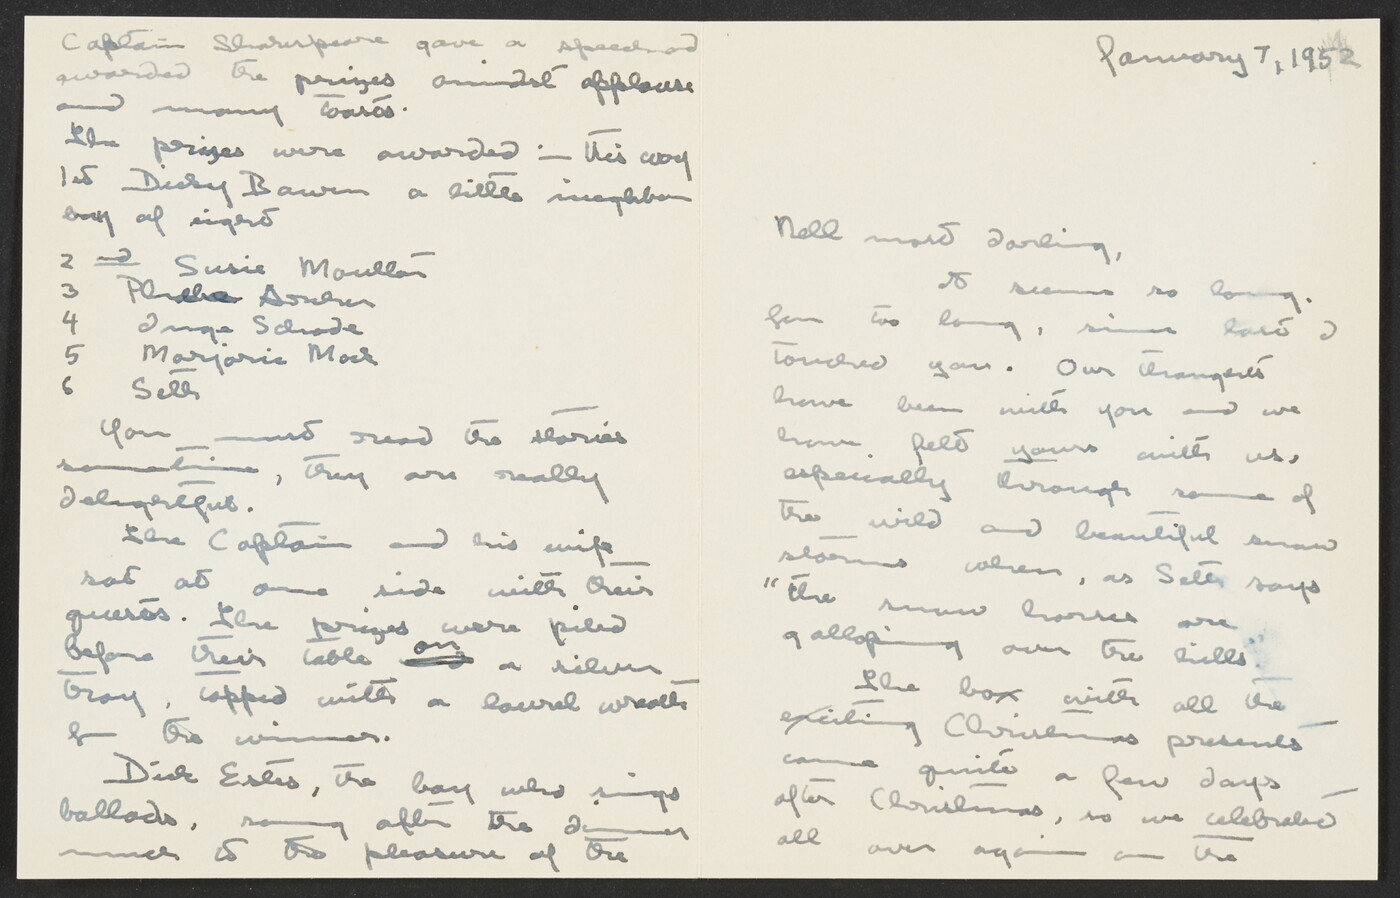 Captain Shakespeare gave a speech and
awarded the prizes amidst applause
and many toasts.
The prizes were awarded :— this way
1st Dicky Bowen a little neighbor
boy of eight
2nd Susie Moulton
3 Phebe Archer
4 Inge Schade
5 Marjorie Mack
6 Seth
You must read the stories
sometime, they are really
delightful.
The Captain and his wife
sat at one side with their
guests. The prizes were piled
before their table on a silver
tray, topped with a laurel wreath
for the winner.
Dick Estes, the boy who sings
ballads, sang after the dinner
much to the pleasure of the
January 7, 1952
Nell most darling,
It seems so long.
far too long, since last I
touched you. Our thoughts
have been with you and we
have felt yours with us.
especially through some of
the wild and beautiful snow
storms when, as Seth says
"the snow horses are
galloping over the hills".
The box with all the
exciting Christmas presents
came quite a few days
after Christmas, so we celebrated
all over again on the